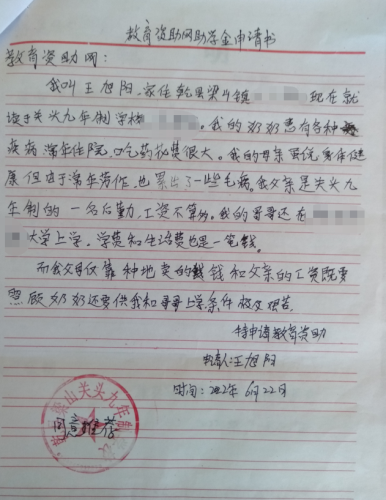 教育资助网助学金申请书
教育资助网：
我叫王旭阳，家住乾县梁山镇 现在就
读于关头九年制学校 。我的奶奶患有各种
疾病常年住院，吃药花费很大。我的母亲虽然身体健
康但由于常年劳作，也累出了一些毛病，我父亲是关头九
年制的一名后勤，工资不算多。我的哥哥还在
大学上学。学费和生活费也是一笔钱。
而我父母仅靠种地卖的钱和父亲的工资既要
照顾奶奶还要供我和哥哥上学条件极及艰苦。
特申请教育资助
申请人：王旭阳
时间：2022年6月22日
梁山关头九年制
同意推荐